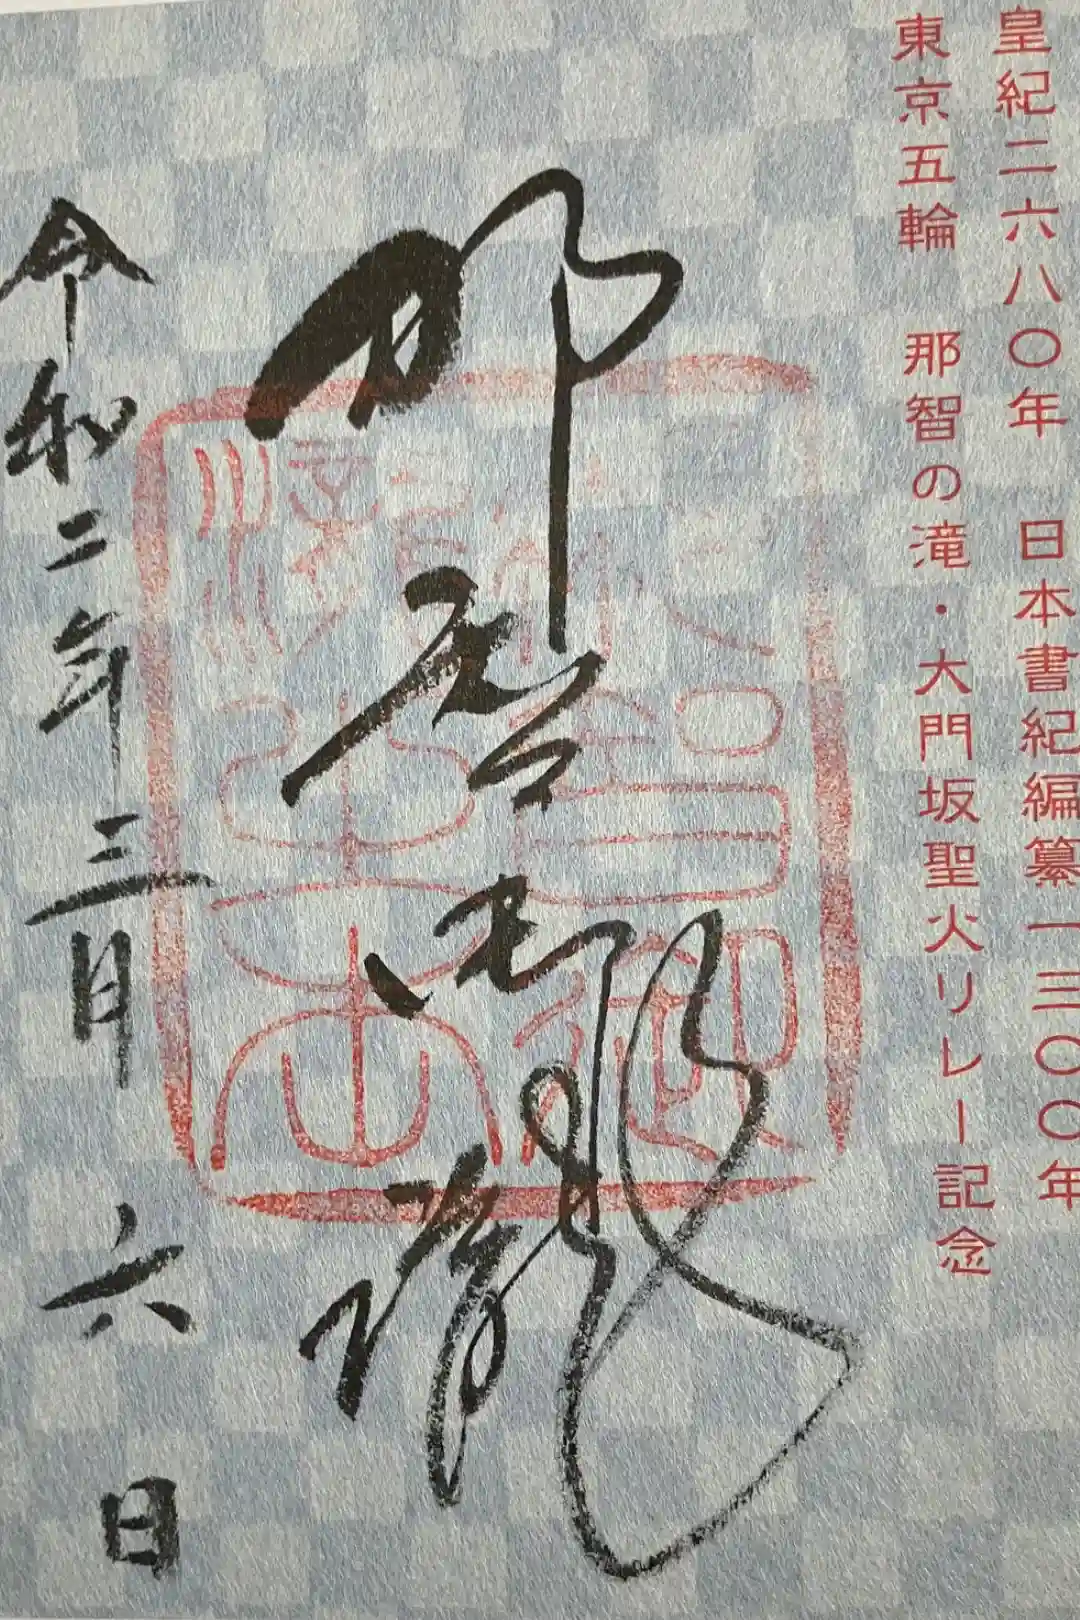 皇紀二六八〇年　日本書紀編纂一三〇〇年
東京五輪　那智の滝・大門坂聖火リレー記念
那智御瀧
令和二年三月六日